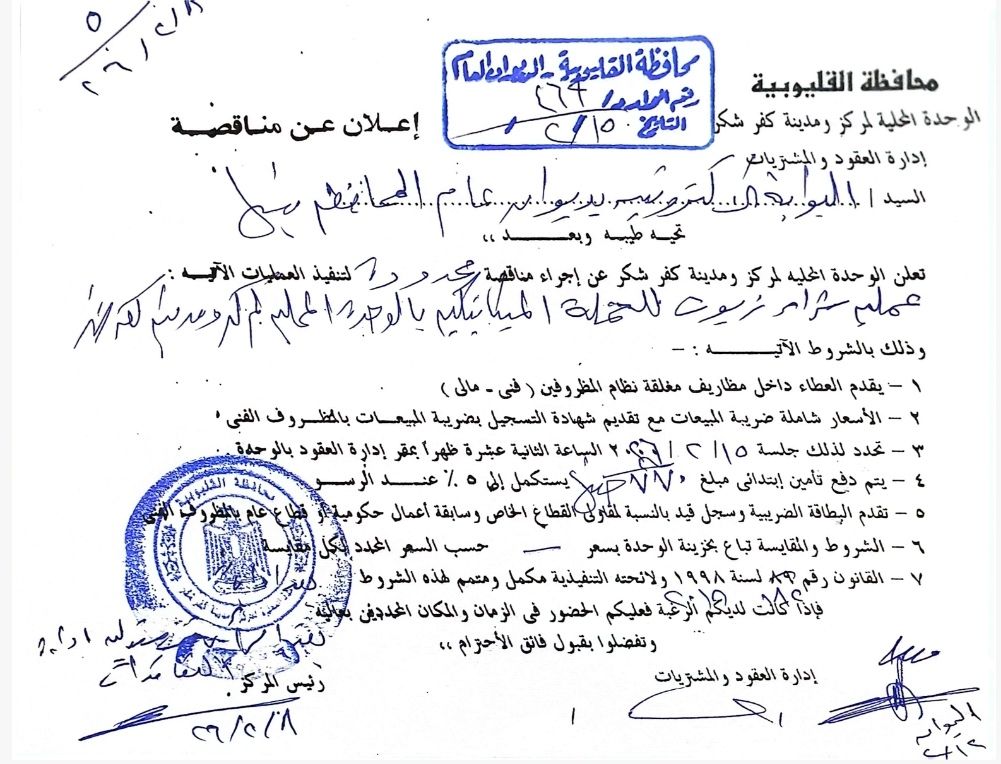 ٥
٢٦/٢/٨
محافظة القليوبية - الديوان العام
رقم الوارد /
التاريخ ١٥ / ٢ /
محافظة القليوبية
الوحدة المحلية لمركز ومدينة كفر شكر
إعلان عن مناقصة
إدارة العقود والمشتريات
السيد / البوابة الالكترونية بديوان عام المحافظة
تحيه طيبه وبعد ،،
تعلن الوحدة المحليه لمركز ومدينة كفر شكر عن إجراء مناقصة محدودة لتنفيذ العمليات الآتيه :
عملية شراء زيوت للحملة الميكانيكية بالوحدة المحلية لمركز ومدينة كفر شكر
وذلك بالشروط الآتيه : -
١ - يقدم العطاء داخل مظاريف مغلقة نظام المظروفين ( فنى - مالى )
٢ - الأسعار شاملة ضريبة المبيعات مع تقديم شهادة التسجيل بضريبة المبيعات بالمظروف الفنى
٣ - تحدد لذلك جلسة ١٥ / ٢ / ٢٠٢٦ الساعة الثانية عشرة ظهراً بمقر إدارة العقود بالوحدة
٤ - يتم دفع تأمين إبتدائى مبلغ ٧٧٠ جنيه يستكمل إلى ٥ ٪ عند الرسو
٥ - تقدم البطاقة الضريبية وسجل قيد بالنسبة لمقاولى القطاع الخاص وسابقة أعمال حكومية أو قطاع عام بالظروف الفنى
٦ - الشروط والمقايسة تباع بخزينة الوحدة بسعر — حسب السعر المحدد لكل مقايسة
٧ - القانون رقم لسنة ١٩٩٨ ولائحته التنفيذية مكمل ومتمم لهذه الشروط
فإذا كانت لديكم الرغبة فعليكم الحضور فى الزمان والمكان المحددين بعاليه
وتفضلوا بقبول فائق الأحترام ،،
إدارة العقود والمشتريات
رئيس المركز
٢٦/٢/٨
محافظة القليوبية
البوابة